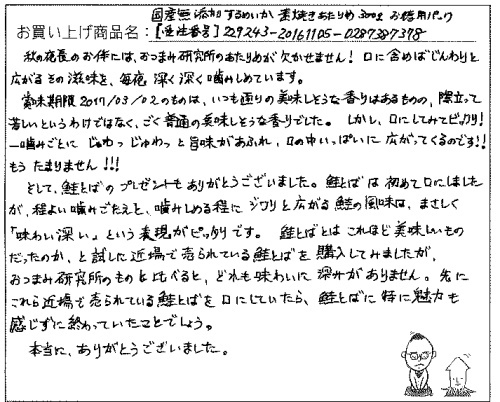 国産無添加するめいか 素焼きあたりめ 300g お徳用パック
お買い上げ商品名:【受注番号】229243-20161105-0287387378
秋の夜長のお伴には、おつまみ研究所のあたりめが欠かせません!口に含めばじんわりと
広がるその滋味を、毎夜 深く深く噛みしめています。
賞味期限2017/03/02のものは、いつも通りの美味しそうな香りはあるものの、際立って
苦しいというわけではなく、ごく普通の美味しそうな香りでした。しかし、口にしてみてビックリ!
一噛みごとに じゅわっ じゅわっと 旨味があふれ、口の中いっぱいに広がってくるのです!!
もう たまりません!!!
そして、鮭とばのプレゼントもありがとうございました。鮭とばは初めて口にしました
が、程よい噛みごたえと、噛みしめる程に ジワリと広がる鮭の風味は、まさしく
「味わい深い」という表現がピッタリです。 鮭とばとは これほど美味しいもの
だったのか、と試しに近場で売られている鮭とばを購入してみましたが、
おつまみ研究所のものと比べると、どれも味わいに深みがありません。先に
これら近場で売られている鮭とばを口にしていたら、鮭とばに特に魅力も
感じずに終わっていたことでしょう。
本当に、ありがとうございました。